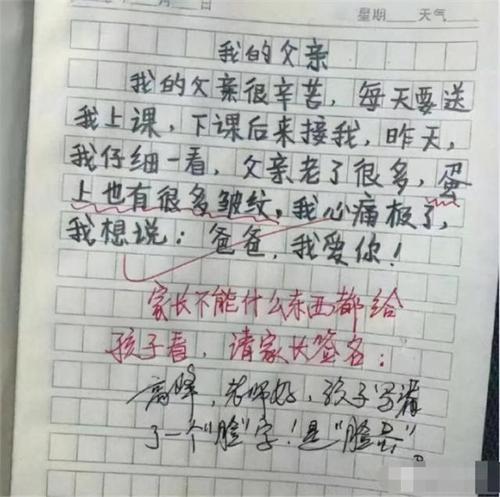 月 日 星期 天气
我的父亲
我的父亲很辛苦，每天要送
我上课，下课后来接我，昨天，
我仔细一看，父亲老了很多，蛋
上也有很多皱纹，我心痛极了，
我想说：爸爸，我爱你！
家长不能什么东西都给
孩子看，请家长签名：
高峰，老师好，孩子写漏
了一个"脸"字！是"脸蛋"。